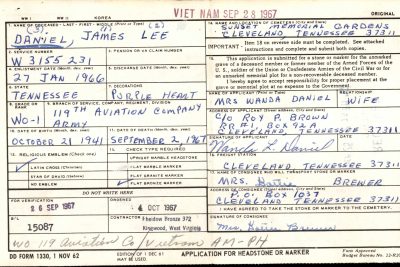 WW I WW II KOREA VIET NAM SEP 28 1967
1. NAME OF DECEASED (Last, First, Middle)
(3) (1) (2)
DANIEL, JAMES LEE
2. SERVICE NUMBER
W 3155 231
3. PENSION OR VA CLAIM NUMBER
4. ENLISTMENT DATE
27 JAN 1966
6. STATE
TENNESSEE
7. DECORATIONS
PURPLE HEART
8. GRADE
WO-1
9. BRANCH OF SERVICE, COMPANY, REGIMENT, DIVISION
119TH AVIATION COMPANY
ARMY
10. DATE OF BIRTH
OCTOBER 21 1941
11. DATE OF DEATH
SEPTEMBER 2, 1967
12. RELIGIOUS EMBLEM (Check one)
LATIN CROSS (Christian)
STAR OF DAVID (Hebrew)
NO EMBLEM
CHECK TYPE REQUIRED
UPRIGHT MARBLE HEADSTONE
FLAT MARBLE MARKER
FLAT GRANITE MARKER
FLAT BRONZE MARKER
SUNSET MEMORIAL GARDENS
CLEVELAND, TENNESSEE 37311
IMPORTANT - Item 18 on reverse side must be completed. See attached instructions and complete and submit both copies.
This application is submitted for a stone or marker for the unmarked grave of a deceased member or former member of the Armed Forces of the U.S., soldier of the Union or Confederate Armies of the Civil War or for an unmarked memorial plot for a non-recoverable deceased member.
I hereby agree to accept responsibility for proper placement at the grave or memorial plot at no expense to the Government.
MRS WANDA DANIEL WIFE
C/O ROY P. BROWN
RR #4 BOX 92A
CLEVELAND, TENNESSEE 37311
SIGNATURE OF APPLICANT
Wanda L. Daniel
FREIGHT STATION
CLEVELAND TENNESSEE 37311
NAME OF CONSIGNEE WHO WILL TRANSPORT STONE OR MARKER
MRS. Hattie BREWER
P.O. BOX 1057
CLEVELAND TENNESSEE 37311
I HAVE AGREED TO TAKE THE STONE OR MARKER TO THE CEMETERY.
SIGNATURE OF CONSIGNEE
Mrs. Hattie Brewer
DO NOT WRITE HERE
FOR VERIFICATION
26 SEP 1967
ORDERED
4 OCT 1967
B/L
15087
CONTRACTOR
Sheidow Bronze 372
Kingwood, West Virginia
WO 119 Aviation Co Vietnam AM-PH
DD FORM 1330, 1 NOV 62
EDITION OF 1 DEC 61 MAY BE USED.
APPLICATION FOR HEADSTONE OR MARKER
Form Approved